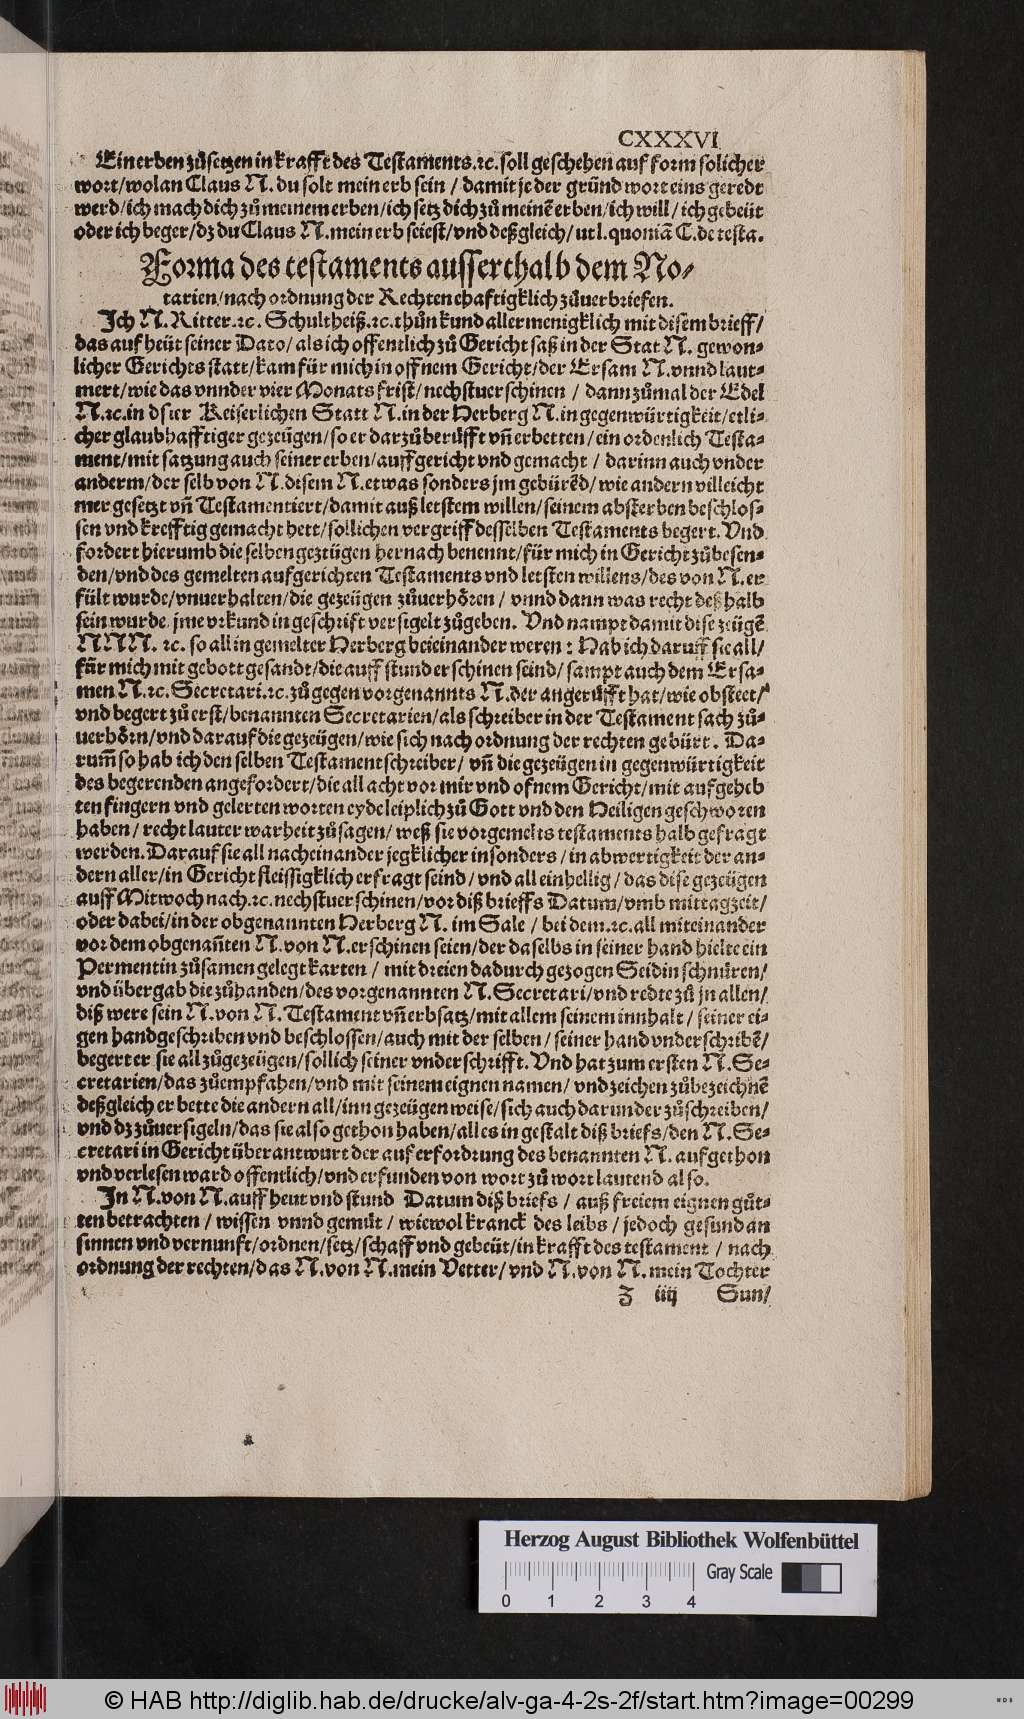 CXXXVI
Ein erben zůsetzen in krafft des Testaments.ꝛc. soll geschehen auf form solicher
wort/wolan Claus N. du solt mein erb sein / damit je der gründ wort eins geredt
werd/ich mach dich zů meinem erben/ich setz dich zů meinē erben/ich will / ich gebeüt
oder ich beger/dz du Claus N. mein erb seiest/vnd deßgleich/ut l. quoniā C. de testa.
Forma des testaments ausserthalb dem No-
tarien/nach ordnung der Rechten ehafftigklich zůuerbriefen.
Ich N. Ritter.ꝛc. Schultheiß.ꝛc. thůn kund allermenigklich mit disem brieff/
das auf heüt seiner Dato/ als ich offentlich zů Gericht saß in der Stat N. gewon-
licher Gerichts statt/kam für mich in offnem Gericht/der Ersam N. vnnd laut-
mert/wie das vnnder vier Monats frist/nechstuerschinen / dannzůmal der Edel
N.ꝛc. in dser Keiserlichen Statt N. in der Herberg N. in gegenwürtigkeit/etli-
cher glaubhafftiger gezeügen/so er darzů berüfft vñ erbetten/ein ordenlich Testa-
ment/mit satzung auch seiner erben/auffgericht vnd gemacht / darinn auch vnder
anderm/der selb von N. disem N. etwas sonders jm gebürēd/wie andern villeicht
mer gesetzt vñ Testamentiert/damit auß letstem willen/seinem absterben beschlos-
sen vnd krefftig gemacht hett/sollichen vergriff desselben Testaments begert. Vnd
fordert hierumb die selben gezeügen hernach benennt/für mich in Gericht zůbesen-
den/vnd des gemelten aufgerichten Testaments vnd letsten willens/des von N. er
fült wurde/vnuerhalten/die gezeügen zůuerhören / vnnd dann was recht deßhalb
sein wurde. jme vrkund in geschrift versigelt zůgeben. Vnd nampt damit dise zeügē
NNN. ꝛc. so all in gemelter Herberg beieinander weren : Hab ich daruff sie all/
für mich mit gebott gesandt/die auff stund erschinen seind/ sampt auch dem Ersa-
men N.ꝛc. Secretari.ꝛc. zů gegen vorgenannts N. der angerüfft hat/wie obsteet/
vnd begert zů erst/benannten Secretarien/als schreiber in der Testament sach zů-
uerhörn/vnd darauf die gezeügen/wie sich nach ordnung der rechten gebürt. Da-
rum̄ so hab ich den selben Testamentschreiber/ vñ die gezeügen in gegenwürtigkeit
des begerenden angefordert/die all acht vor mir vnd ofnem Gericht/mit aufgeheb
ten fingern vnd gelerten worten eyde leiplich zů Gott vnd den Heiligen geschworen
haben / recht lauter warheit zůsagen/ weß sie vorgemelts testaments halb gefragt
werden. Darauf sie all nacheinander jegklicher insonders / in abwertigkeit der an-
dern aller/in Gericht fleissigklich erfragt seind / vnd all einhellig / das dise gezeügen
auff Mitwoch nach.ꝛc. nechstuerschinen/vor diß brieffs Datum/vmb mittagzeit/
oder dabei/in der obgenannten Herberg N. im Sale / bei dem.ꝛc. all miteinander
vor dem obgenañten N. von N. erschinen seien/der daselbs in seiner hand hielte ein
Permentin zůsamen gelegt karten / mit dreien dadurch gezogen Seidin schnůren/
vnd übergab die zůhanden/des vorgenannten N. Secretari/vnd redte zů jn allen/
diß were sein N. von N. Testament vñ erbsatz/mit allem seinem innhalt / seiner ei-
gen handgeschriben vnd beschlossen/auch mit der selben / seiner hand vnderschribē/
begert er sie all zůgezeügen/sollich seiner vnderschrifft. Vnd hat zum ersten N. Se-
cretarien/das zůempfahen/vnd mit seinem eignen namen/ vnd zeichen zůbezeichnē
deßgleich er bette die andern all/inn gezeügen weise/sich auch darunder zůschreiben/
vnd dz zůuersigeln/das sie also gethon haben/alles in gestalt diß briefs/den N. Se-
cretari in Gericht überantwurt der auf erfordrung des benannten N. aufgethon
vnd verlesen ward offentlich/vnd erfunden von wort zů wort lautend also.
In N. von N. auff heut vnd stund Datum diß briefs / auß freiem eignen gůt-
ten betrachten / wissen vnnd gemüt / wiewol kranck des leibs / jedoch gesund an
sinnen vnd vernunft/ordnen/setz/schaff vnd gebeüt/in krafft des testament / nach
ordnung der rechten/das N. von N. mein Vetter/ vnd N. von N. mein Tochter
Z iiij Sun/
Herzog August Bibliothek Wolfenbüttel
Gray Scale
0 1 2 3 4
© HAB http://diglib.hab.de/drucke/alv-ga-4-2s-2f/start.htm?image=00299